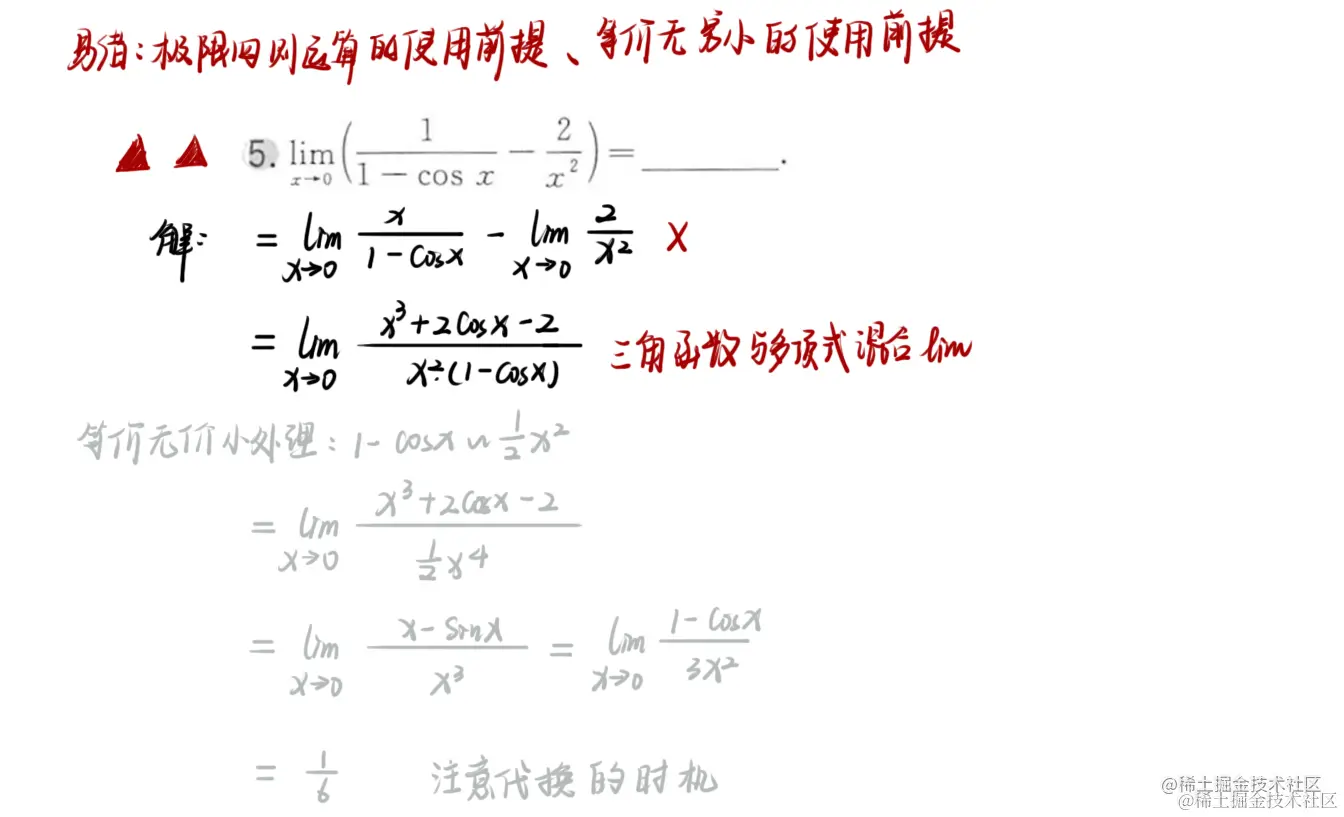 易错：极限四则运算的使用前提、等价无穷小的使用前提
▲ ▲ 5. lim_{x→0} ( 1/(1 − cos x) − 2/x² ) = ______.
解： = lim_{x→0} x/(1 − cosx) − lim_{x→0} 2/x² ×
= lim_{x→0} (x³ + 2cosx − 2)/(x²·(1 − cosx)) 三角函数与多项式混合lim
等价无价小处理：1 − cosx ~ 1/2 x²
= lim_{x→0} (x³ + 2cosx − 2)/(1/2 x⁴)
= lim_{x→0} (x − sinx)/x³ = lim_{x→0} (1 − cosx)/3x²
= 1/6 注意代换的时机
@稀土掘金技术社区
@稀土掘金技术社区